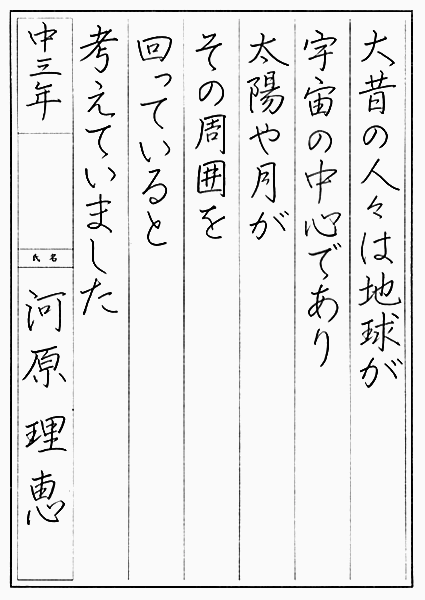 大昔の人々は地球が
宇宙の中心であり
太陽や月が
その周囲を
回っていると
考えていました
中三年
氏名
河原理恵